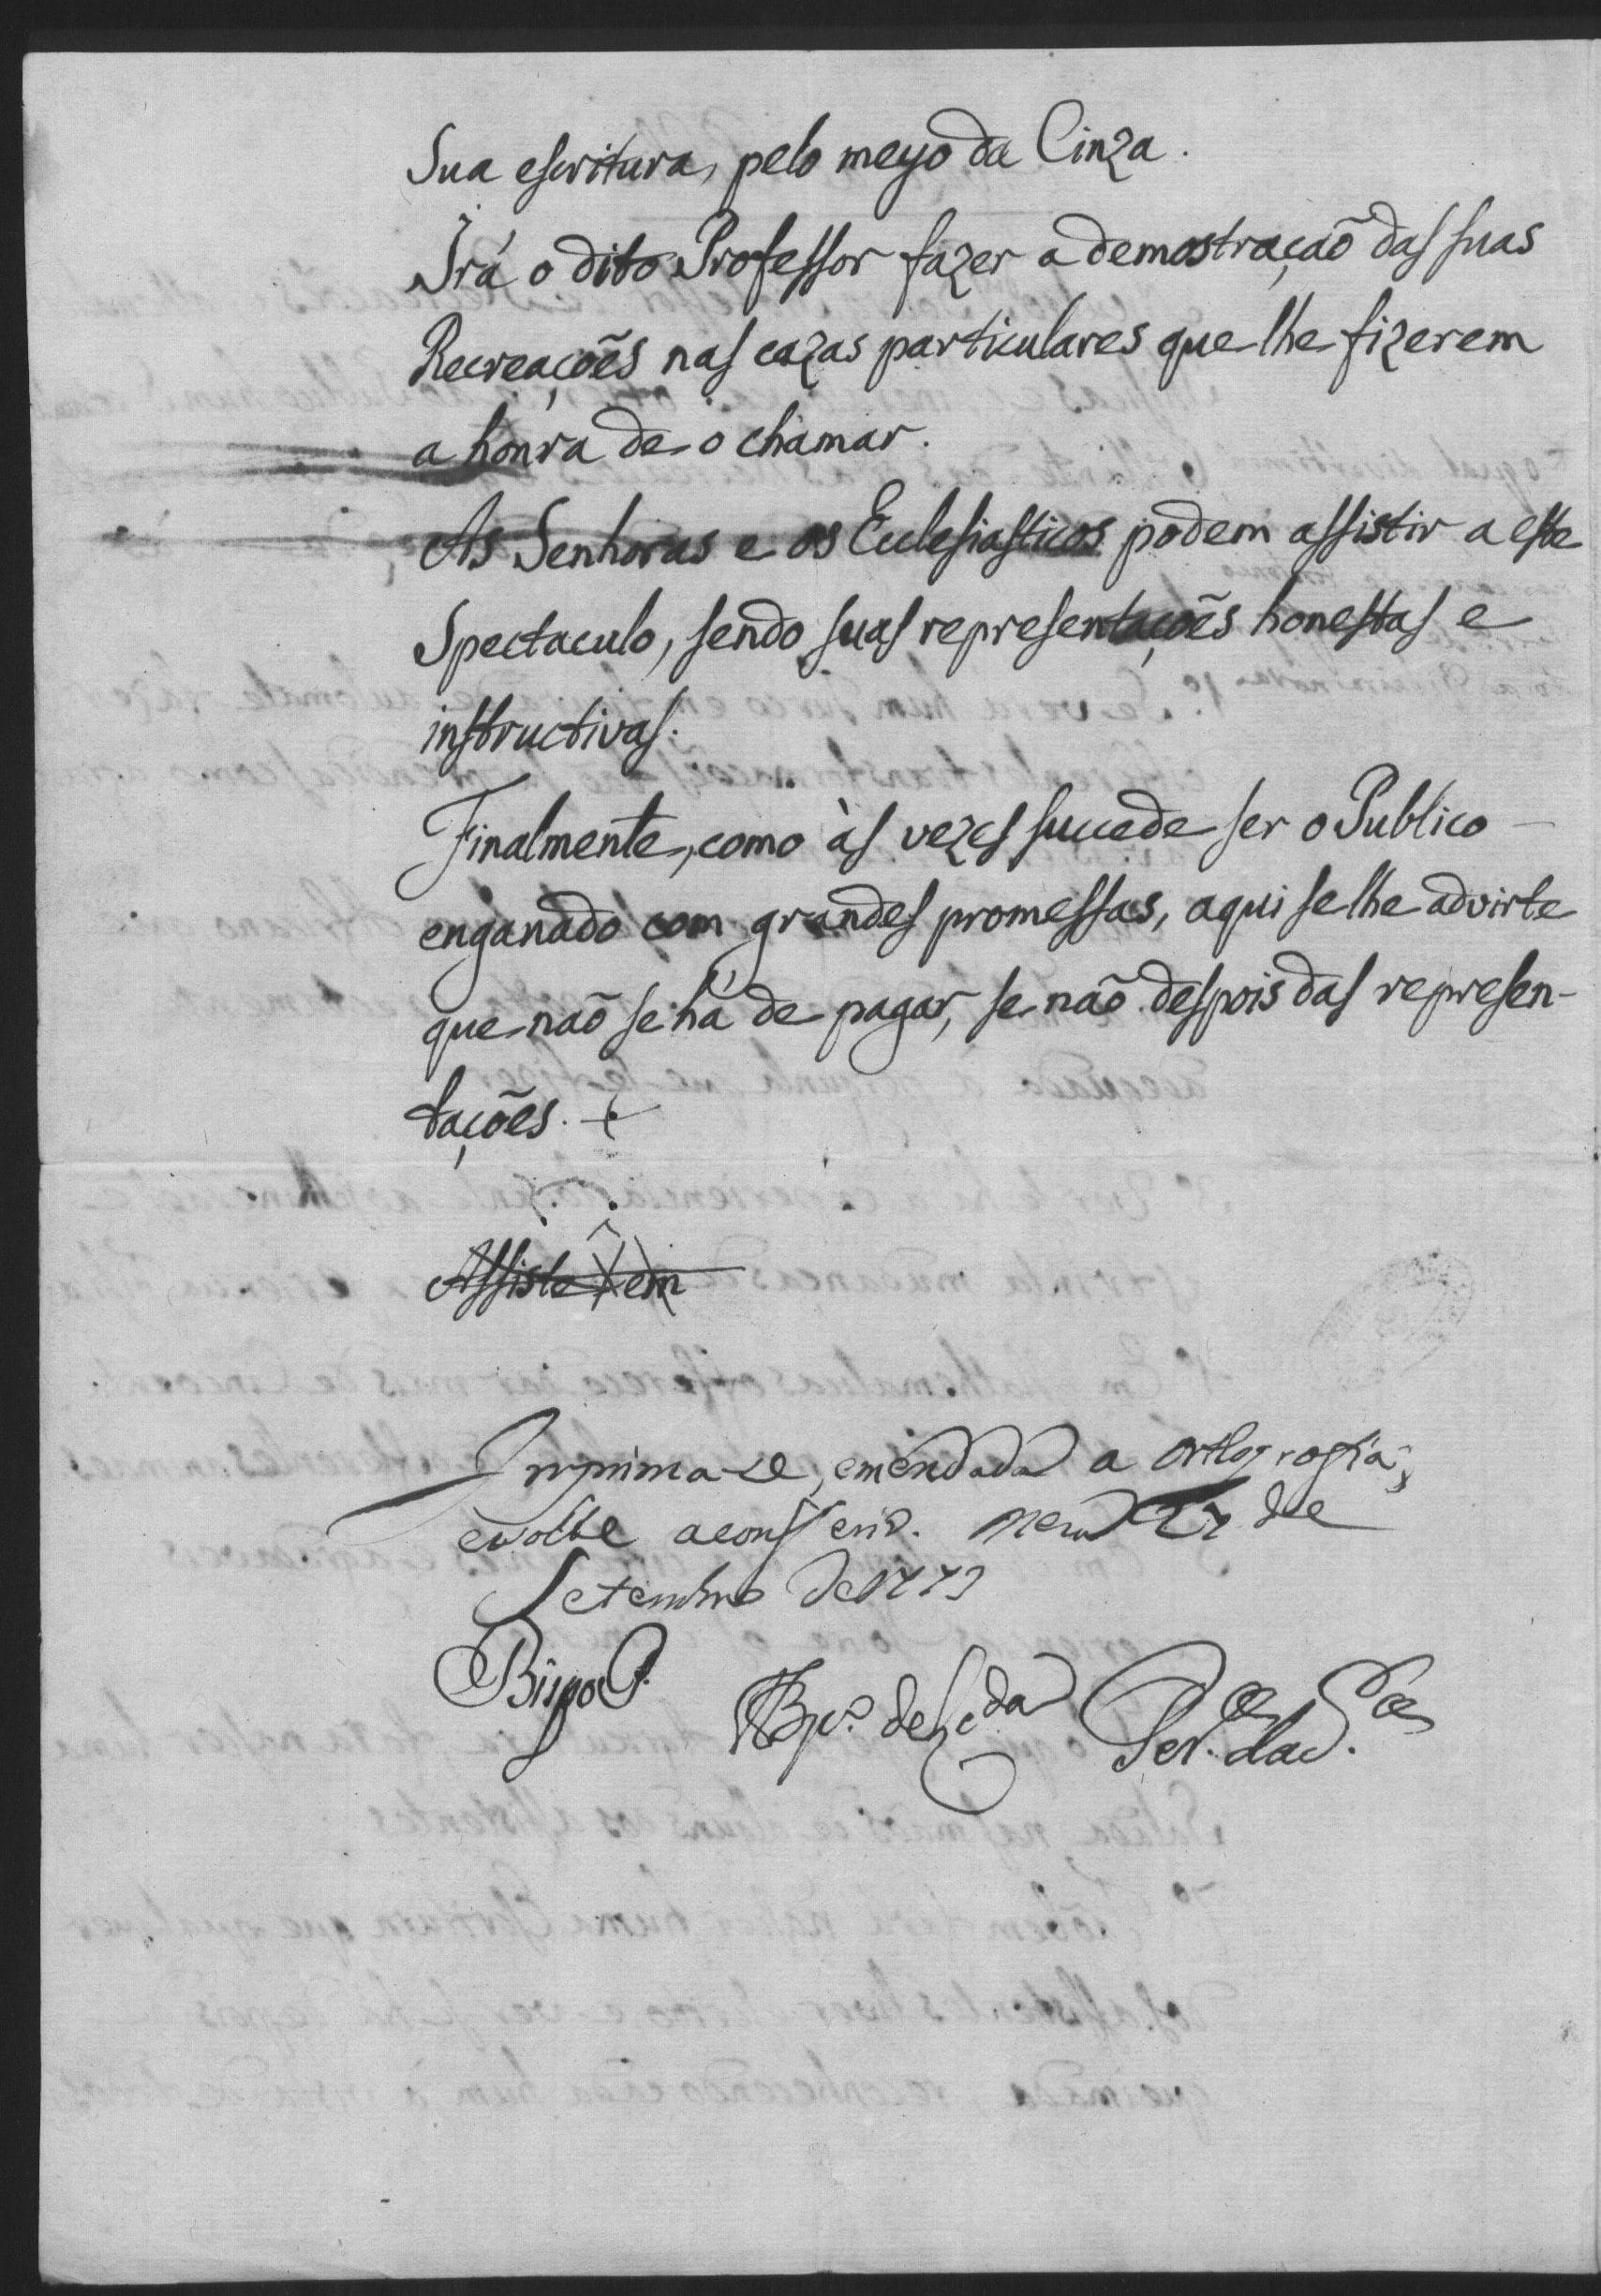 Sua escritura, pelo meyo da Cinza.
Irá o dito Professor fazer a demostraçaõ das suas
Recreações nas cazas particulares que lhe fizerem
a honra de o chamar.
As Senhoras e os Ecclesiasticos podem assistir a este
Spectaculo, sendo suas representações honestas e
instructivas.
Finalmente, como às vezes succede ser o Publico
enganado com grandes promessas, aqui se lhe advirte
que naõ se há de pagar, se naõ despois das represen-
tações.
Assiste em
Imprima-se, emendada a orthografia,
e volte a conferir. Meza 27 de
Setembro de 1773
Bispo P.